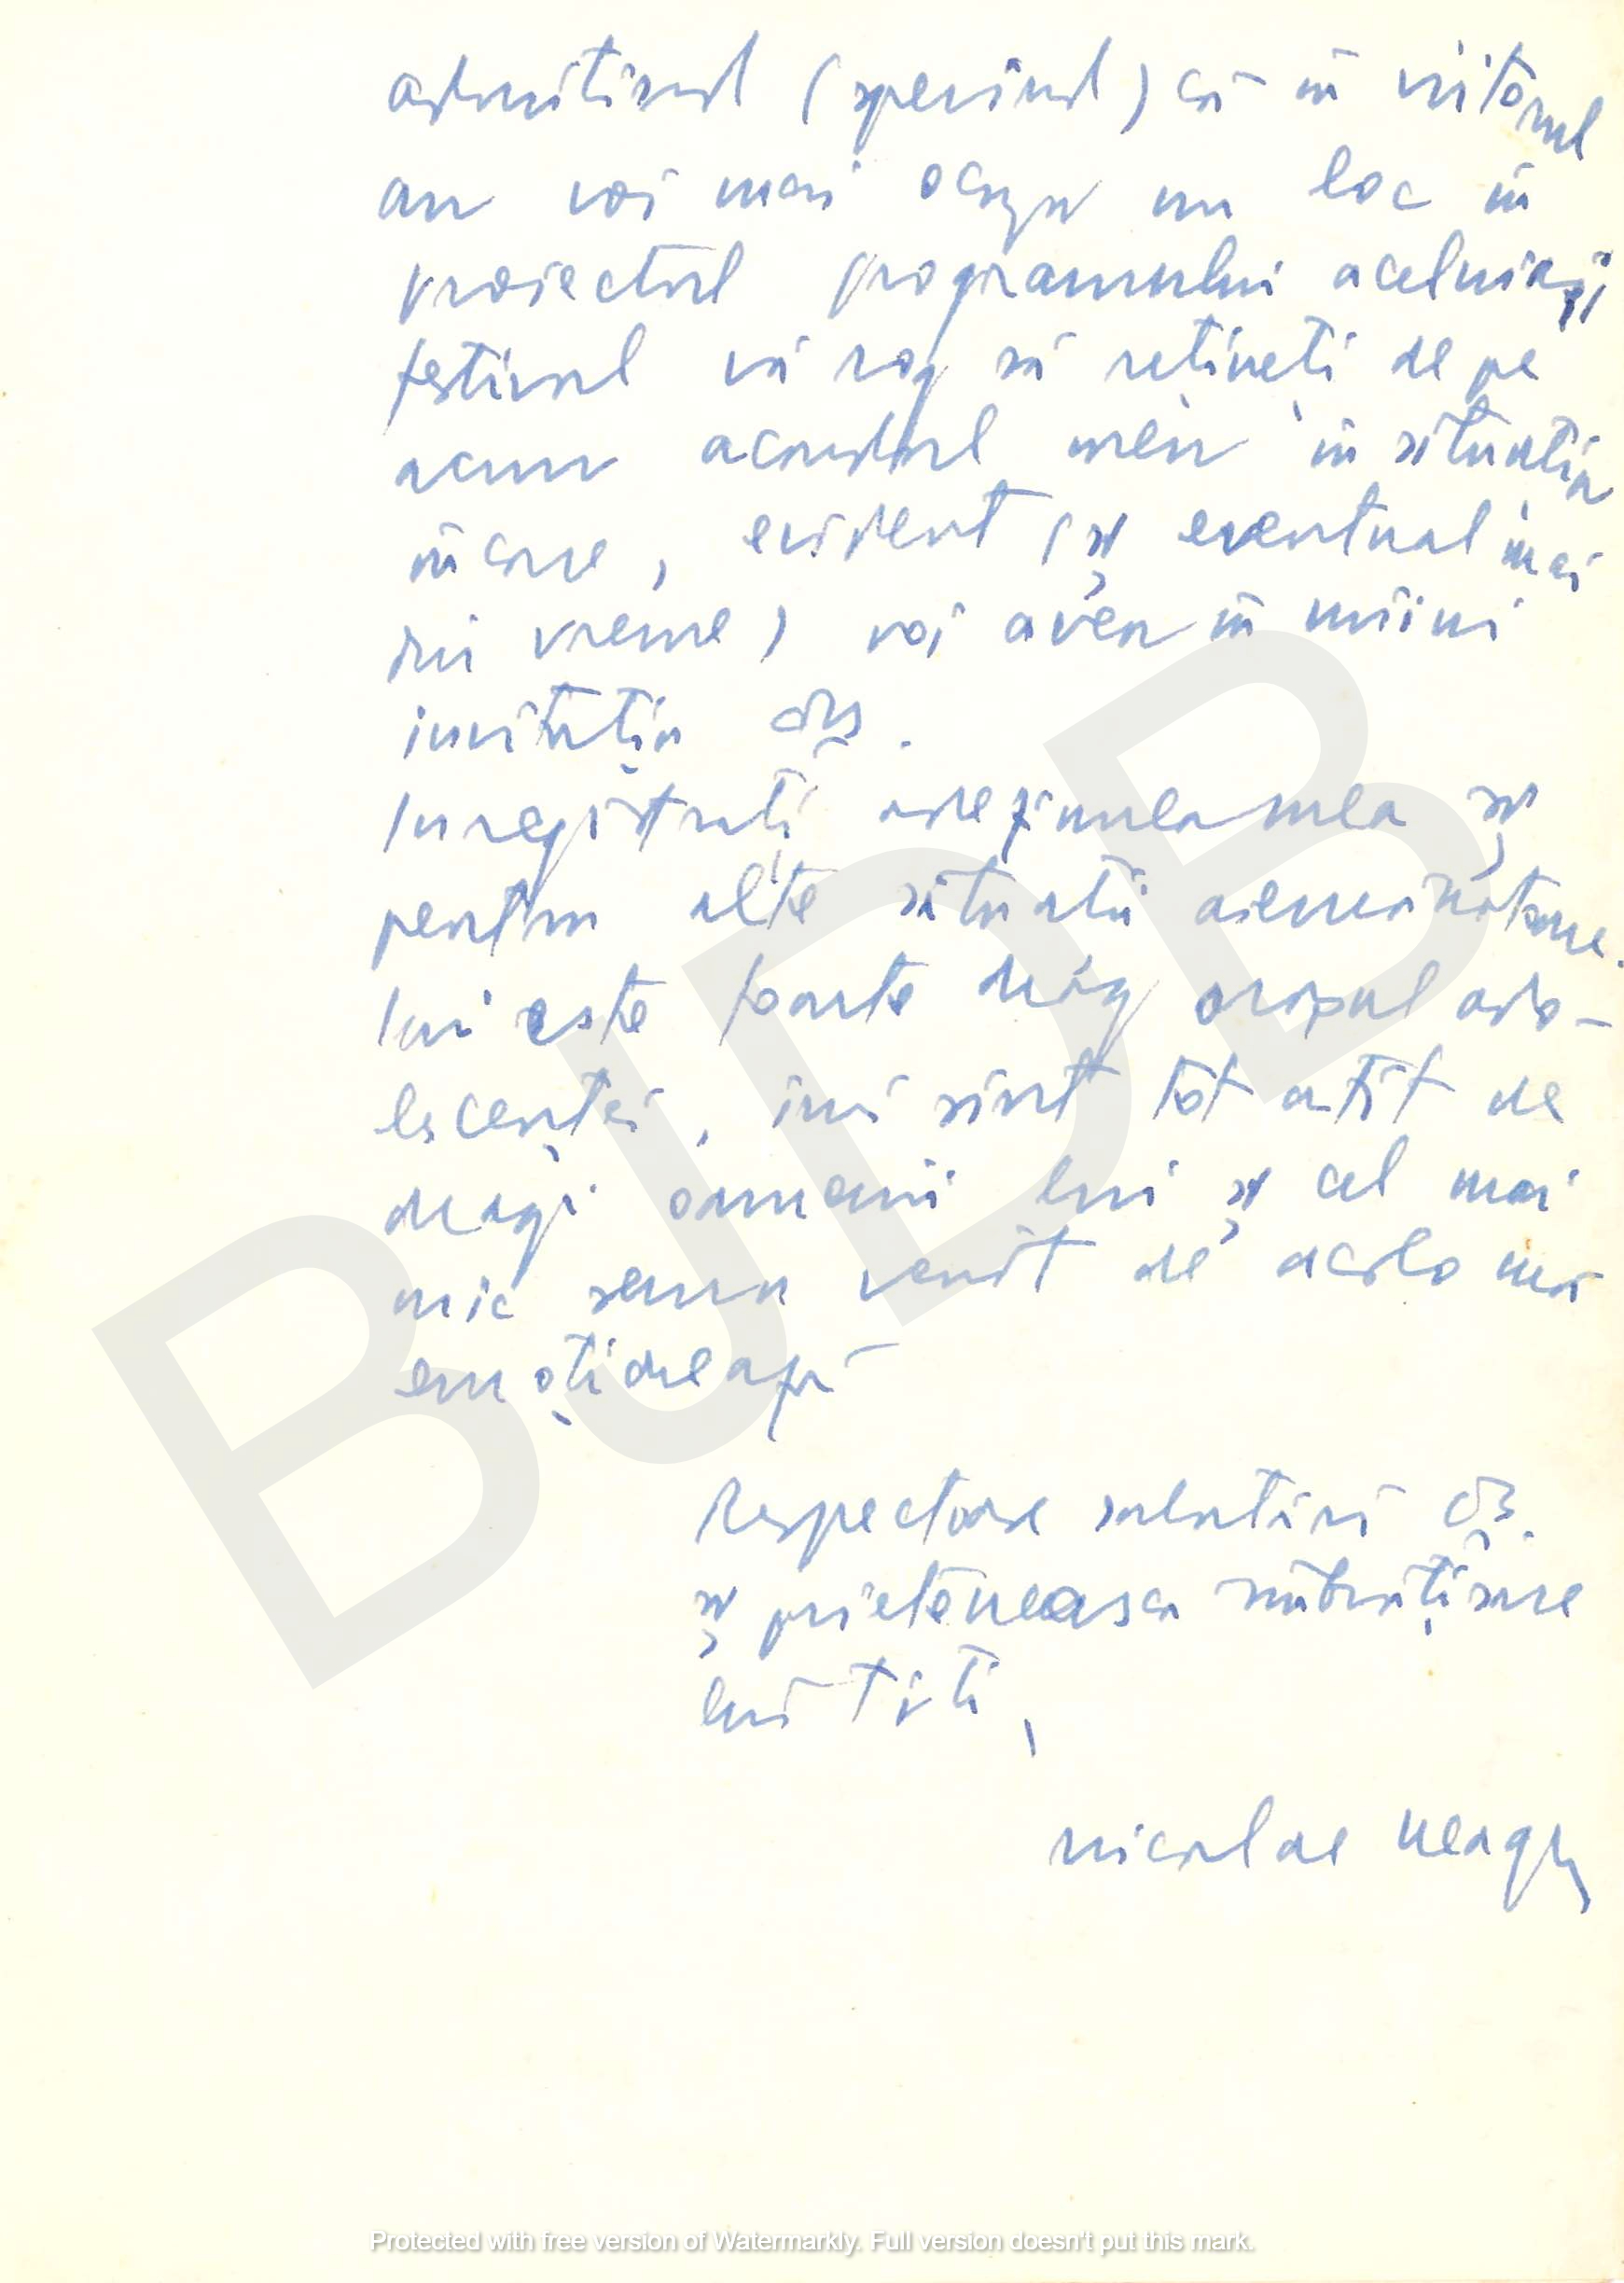 admitînd (sperînd) că în viitorul
an voi mai ocupa un loc în
proiectul programului aceluiași
festival vă rog să rețineți de pe
acum acordul meu în situația
în care, evident (și eventual mai
din vreme) voi avea în mîini
invitația dvs.
Inregistrați adeziunea mea și
pentru alte situații asemănătoare.
Imi este foarte drag orașul ado-
lescenței, îmi sînt tot atît de
dragi oamenii lui și cel mai
mic semn venit de acolo mă
emoționează
Respectoase salutări dvs.
și prietenească îmbrățișare
lui Titi,
nicolae neagu
BJDB
Protected with free version of Watermarkly. Full version doesn't put this mark.